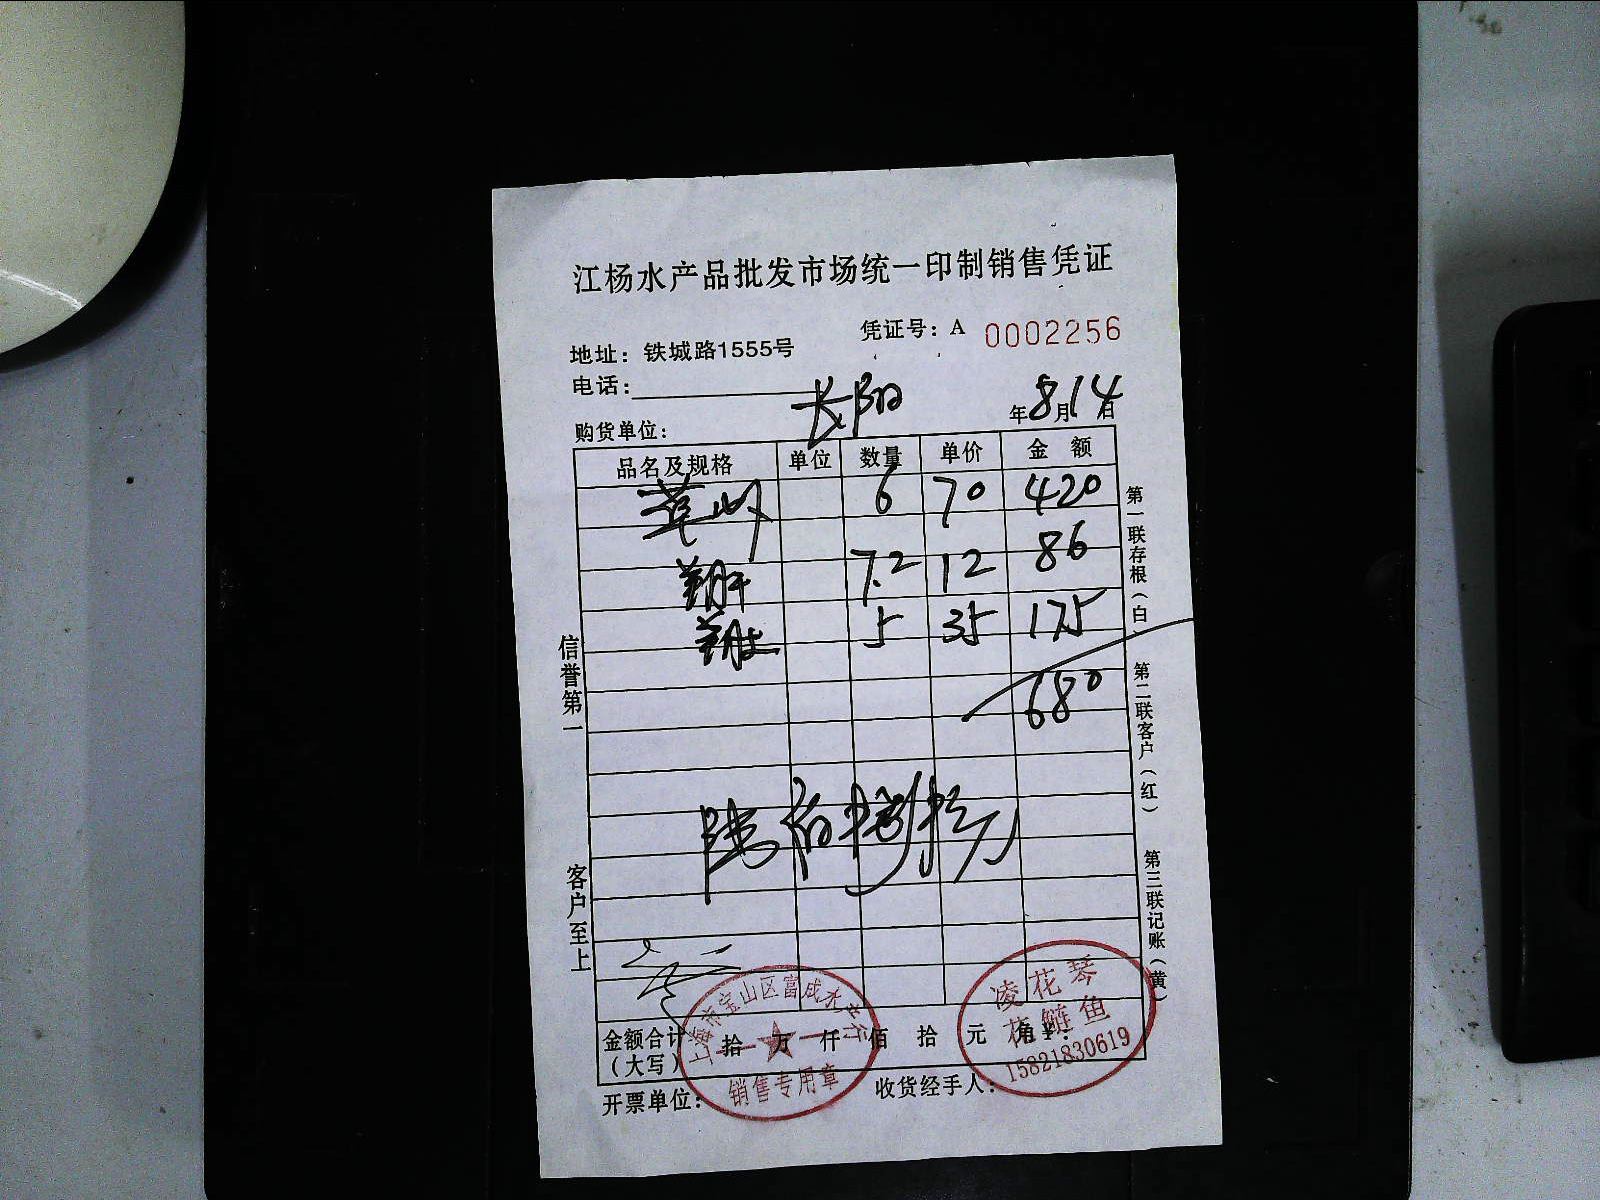 江杨水产品批发市场统一印制销售凭证
凭证号：A 0002256
地址：铁城路1555号
电话：
购货单位： 长阳 年8月14日
品名及规格 单位 数量 单价 金额
6 70 420
7.2 12 86
5 35 175
680
陆佰捌拾
金额合计（大写） 拾 万 仟 佰 拾 元 角
开票单位： 收货经手人：
信誉第一
客户至上
第一联存根（白）
第二联客户（红）
第三联记账（黄）
上海市宝山区富成水产行
销售专用章
凌花琴
花鲢鱼
15821830619